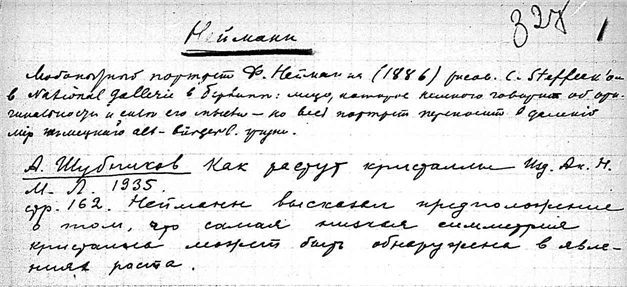 327 1
Нейманн
Любопытный портрет Ф. Неймана (1886) рисов. C. Steffeck'ом
в National gallerie в Берлине: лицо, которое немного говорит об ори-
гинальности и силе его мысли — но весь портрет переносит в далекий
мир немецкого alt-bürgerl.
А. Шубников Как растут кристаллы Изд. Ак. Н.
М. Л. 1935.
стр. 162. Нейманн высказал предположение
о том, что самая низкая симметрия
кристалла может быть обнаружена в явле-
ниях роста.